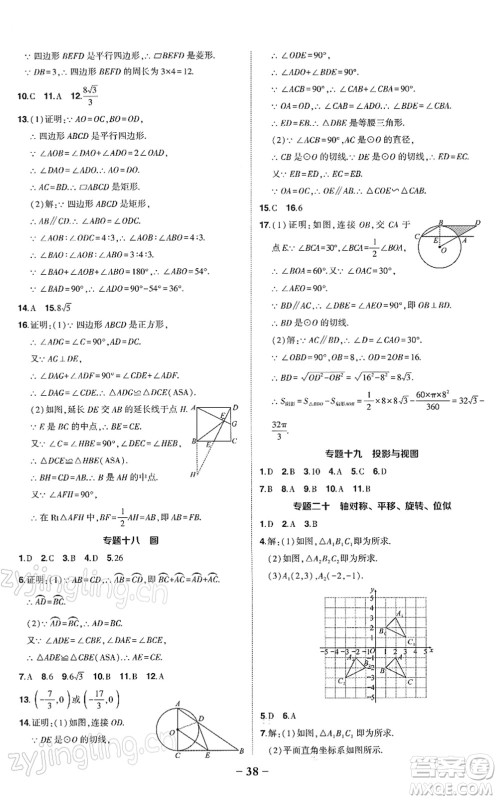 ∵ 四边形 BEFD 是平行四边形,∴ ▱BEFD 是菱形.
∵ DB=3,∴ 四边形 BEFD 的周长为 3×4=12.
10.C 11.A 12.8√3/3
13.(1)证明:∵ AO=OC,BO=OD,
∴ 四边形 ABCD 是平行四边形.
∵ ∠AOB=∠DAO+∠ADO=2∠OAD,
∴ ∠DAO=∠ADO.∴ AO=DO.
∴ AC=BD.∴ ▱ABCD 是矩形.
(2)解:∵ 四边形 ABCD 是矩形,
∴ AB∥CD.∴ ∠ABO=∠CDO.
∵ ∠AOB∶∠ODC=4∶3,
∴ ∠AOB∶∠ABO=4∶3.
∴ ∠BAO∶∠AOB∶∠ABO=3∶4∶3.
∴ ∠ABO=54°.
∵ ∠BAD=90°,∴ ∠ADO=90°-54°=36°.
14.A 15.8√3
16.证明:(1)∵ 四边形 ABCD 是正方形,
∴ ∠ADG=∠C=90°,AD=DC.
又∵ AG⊥DE,
∴ ∠DAG+∠ADF=90°=∠CDE+∠ADF.
∴ ∠DAG=∠CDE.∴ △ADG≌△DCE(ASA).
(2)如图,延长 DE 交 AB 的延长线于点 H.
∵ E 是 BC 的中点,
∴ BE=CE.
又∵ ∠C=∠HBE=90°,
∠DEC=∠HEB,
∴ △DCE≌△HBE(ASA).
∴ BH=DC=AB,即 B 是 AH 的中点.
又∵ ∠AFH=90°,
∴ 在 Rt△AFH 中,BF=1/2AH=AB.
专题十八 圆
1.D 2.C 3.D 4.D 5.26
6.证明:(1)∵ AB=CD,∴ AB=CD,即 BC+AC=AD+AC.
∴ AD=BC.
(2)∵ AD=BC,∴ AD=BC.
又∵ ∠ADE=∠CBE,∠DAE=∠BCE,
∴ △ADE≌△CBE(ASA).∴ AE=CE.
7.A 8.6 9.6√3 10.D 11.A 12.A
13.(-7/3,0)或(-17/3,0)
14.证明:(1)如图,连接 OD.
∵ DE 是⊙O 的切线,
∴ ∠ODE=90°.
∴ ∠ADO+∠BDE=90°.
∵ ∠ACB=90°,∴ ∠CAB+∠CBA=90°.
∵ OA=OD,∴ ∠CAB=∠ADO.∴ ∠BDE=∠CBA.
∴ ED=EB.∴ △EBD 是等腰三角形.
(2)∵ ∠ACB=90°,AC 是⊙O 的直径,
∴ CB 是⊙O 的切线.∵ DE 是⊙O 的切线,
∴ DE=EC.∵ ED=EB,∴ EC=EB.
∵ OA=OC,∴ OE∥AB.∴ △COE∽△CAB.
15.C 16.6
17.(1)证明:如图,连接 OB,交 CA 于点 E.
∵ ∠BCA=30°,∠BCA=1/2∠BOA,
∴ ∠BOA=60°.
∵ ∠OAC=30°,
∴ ∠AEO=90°.
∵ BD∥AC,∴ ∠DBE=∠AEO=90°.
∴ BD 是⊙O 的切线.
(2)解:∵ AC∥BD,∠BCA=30°,∴ ∠D=∠CAO=30°.
∵ ∠OBD=90°,OB=8,∴ OD=2OB=16.
∴ BD=√(OD²-OB²)=√(16²-8²)=8√3.
∴ S阴影=S△BDO-S扇形AOB=1/2×8×8√3-60×π×8²/360=32√3-
32π/3.
专题十九 投影与视图
1.D 2.B 3.10 4.A 5.C 6.D
7.B 8.A 9.B 10.C 11.B
专题二十 轴对称、平移、旋转、位似
1.D 2.C 3.A
4.解:(1)如图,△A₁B₁C₁ 即为所求.
(2)如图,△A₂B₂C₂ 即为所求.
(3)A₁(2,-3),A₂(-2,-1).
5.D 6.A
7.解:(1)如图,△A₁B₁C₁ 即为所求.
(2)平面直角坐标系如图所示.
· 38 ·
zyjingling.com
答案圈